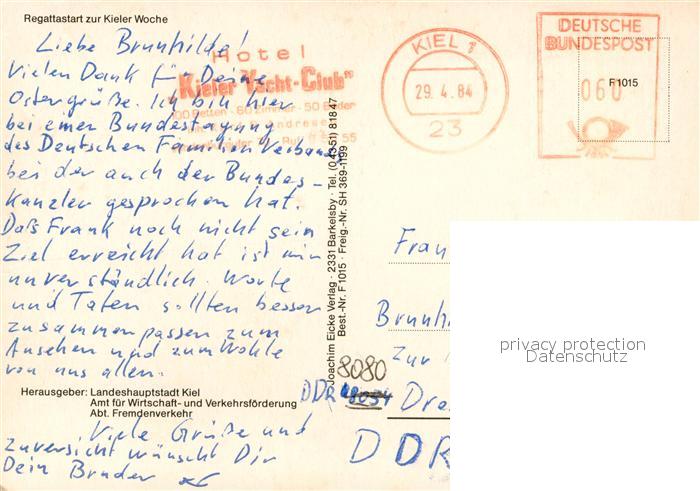 Regattastart zur Kieler Woche
Liebe Brunhilde!
Vielen Dank für Deine
Ostergrüße. Ich bin hier
bei einer Bundestagung
des Deutschen Familien Verbandes
bei der auch der Bundes-
kanzler gesprochen hat.
Daß Frank noch nicht sein
Ziel erreicht hat ist mir
unverständlich. Worte
und Taten sollten besser
zusammenpassen zum
Ansehen und zum Wohle
von uns allen.
Herausgeber: Landeshauptstadt Kiel
Amt für Wirtschaft- und Verkehrsförderung
Abt. Fremdenverkehr
Viele Grüße und
zuversicht wünscht Dir
Dein Bruder
Hotel
Kieler Yacht-Club"
100 Betten · 60 Zimmer · 50 Bäder
55
KIEL 1
29.4.84
23
DEUTSCHE
BUNDESPOST
060
F1015
Joachim Eicke Verlag · 2331 Barkelsby · Tel. (0 43 51) 8 18 47
Best.-Nr. F1015 · Freig.-Nr. SH 369-1199
Frau
Brunhi
Zur
8080
DDR
Dre
DDR
privacy protection
Datenschutz